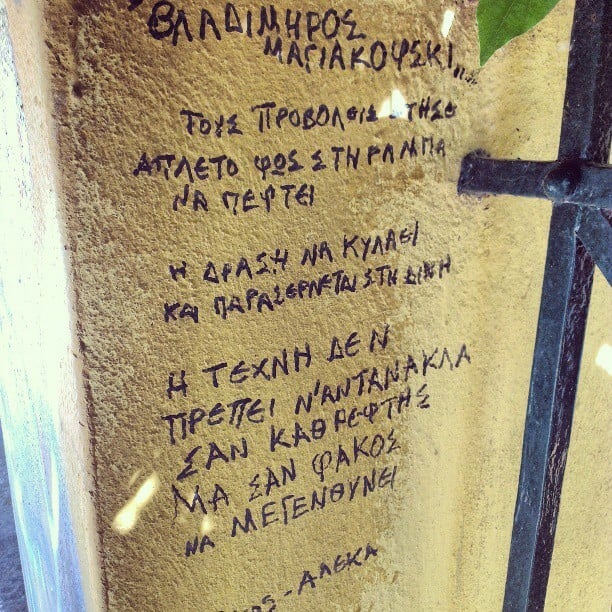 ΒΛΑΔΙΜΗΡΟΣ
ΜΑΓΙΑΚΟΨΣΚΙ...
ΤΟΥΣ ΠΡΟΒΟΛΕΙΣ ΣΤΗΣΕ
ΑΠΛΕΤΟ ΦΩΣ ΣΤΗ ΡΑΜΠΑ
ΝΑ ΠΕΦΤΕΙ
Η ΔΡΑΣΗ ΝΑ ΚΥΛΑΕΙ
ΚΑΙ ΠΑΡΑΣΕΡΝΕΤΑΙ ΣΤΗ ΔΙΝΗ
Η ΤΕΧΝΗ ΔΕΝ
ΠΡΕΠΕΙ Ν'ΑΝΤΑΝΑΚΛΑ
ΣΑΝ ΚΑΘΡΕΦΤΗΣ
ΜΑ ΣΑΝ ΦΑΚΟΣ
ΝΑ ΜΕΓΕΝΘΥΝΕΙ
- ΑΛΕΚΑ